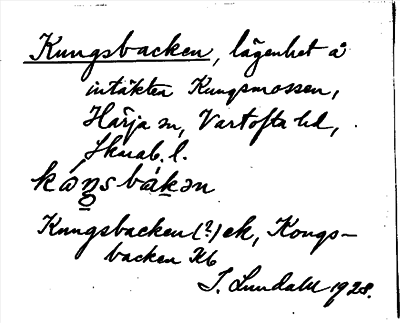 Kungsbacken, lägenhet å
intäkten Kungsmossen,
Härja sn, Vartofta hd,
Skarab. l.
kåŋsbàkən
Kungsbacken(?) ek, Kongs-
backen Kb
I. Lundahl 1928.